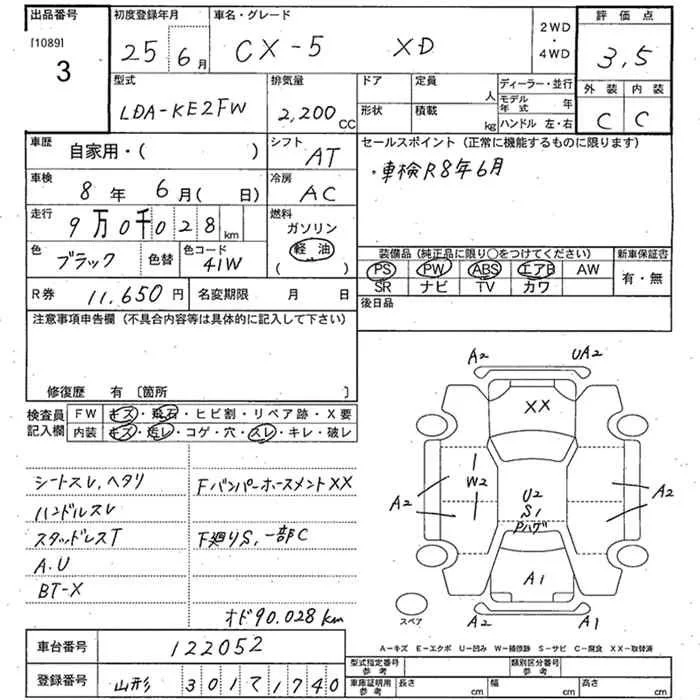 出品番号
[1089]
3
初度登録年月
25年6月
車名・グレード
CX-5 XD
2WD
・
4WD
評価点
3,5
外装 内装
C C
型式
LDA-KE2FW
排気量
2,200cc
ドア 定員 人
形状 積載 kg
ディーラー・並行
モデル年式 年
ハンドル 左・右
車歴
自家用・( )
シフト
AT
セールスポイント (正常に機能するものに限ります)
・車検R8年6月
車検
8年 6月( 日)
冷房
AC
走行
9万0千028km
燃料
ガソリン
軽油
( )
色
ブラック
色替
色コード
41W
装備品 (純正品に限り○をつけてください)
新車保証書
PS PW ABS エアB AW
SR ナビ TV カワ
有・無
R券 11,650円
名変期限 月 日
後日品
注意事項申告欄 (不具合内容等は具体的に記入して下さい)
修復歴 有 〔箇所 〕
検査員記入欄
FW キズ・飛石・ヒビ割・リペア跡・X要
内装 キズ・汚レ・コゲ・穴・スレ・キレ・破レ
シートスレ,ヘタリ
ハンドルスレ
スタッドレスT
A.U
BT-X
FバンパーホースメントXX
下廻りS,一部C
オド90.028km
A2 UA2
XX
W2
A2
A2
U2
S1
Pハゲ
A1
A2 A1
スペア
A－キズ E－エクボ U－凹み W－補修跡 S－サビ C－腐食 XX－取替済
車台番号
122052
登録番号
山形 301て1740
型式指定番号
類別区分番号
車庫証明用参考 長さ cm 幅 cm 高さ cm